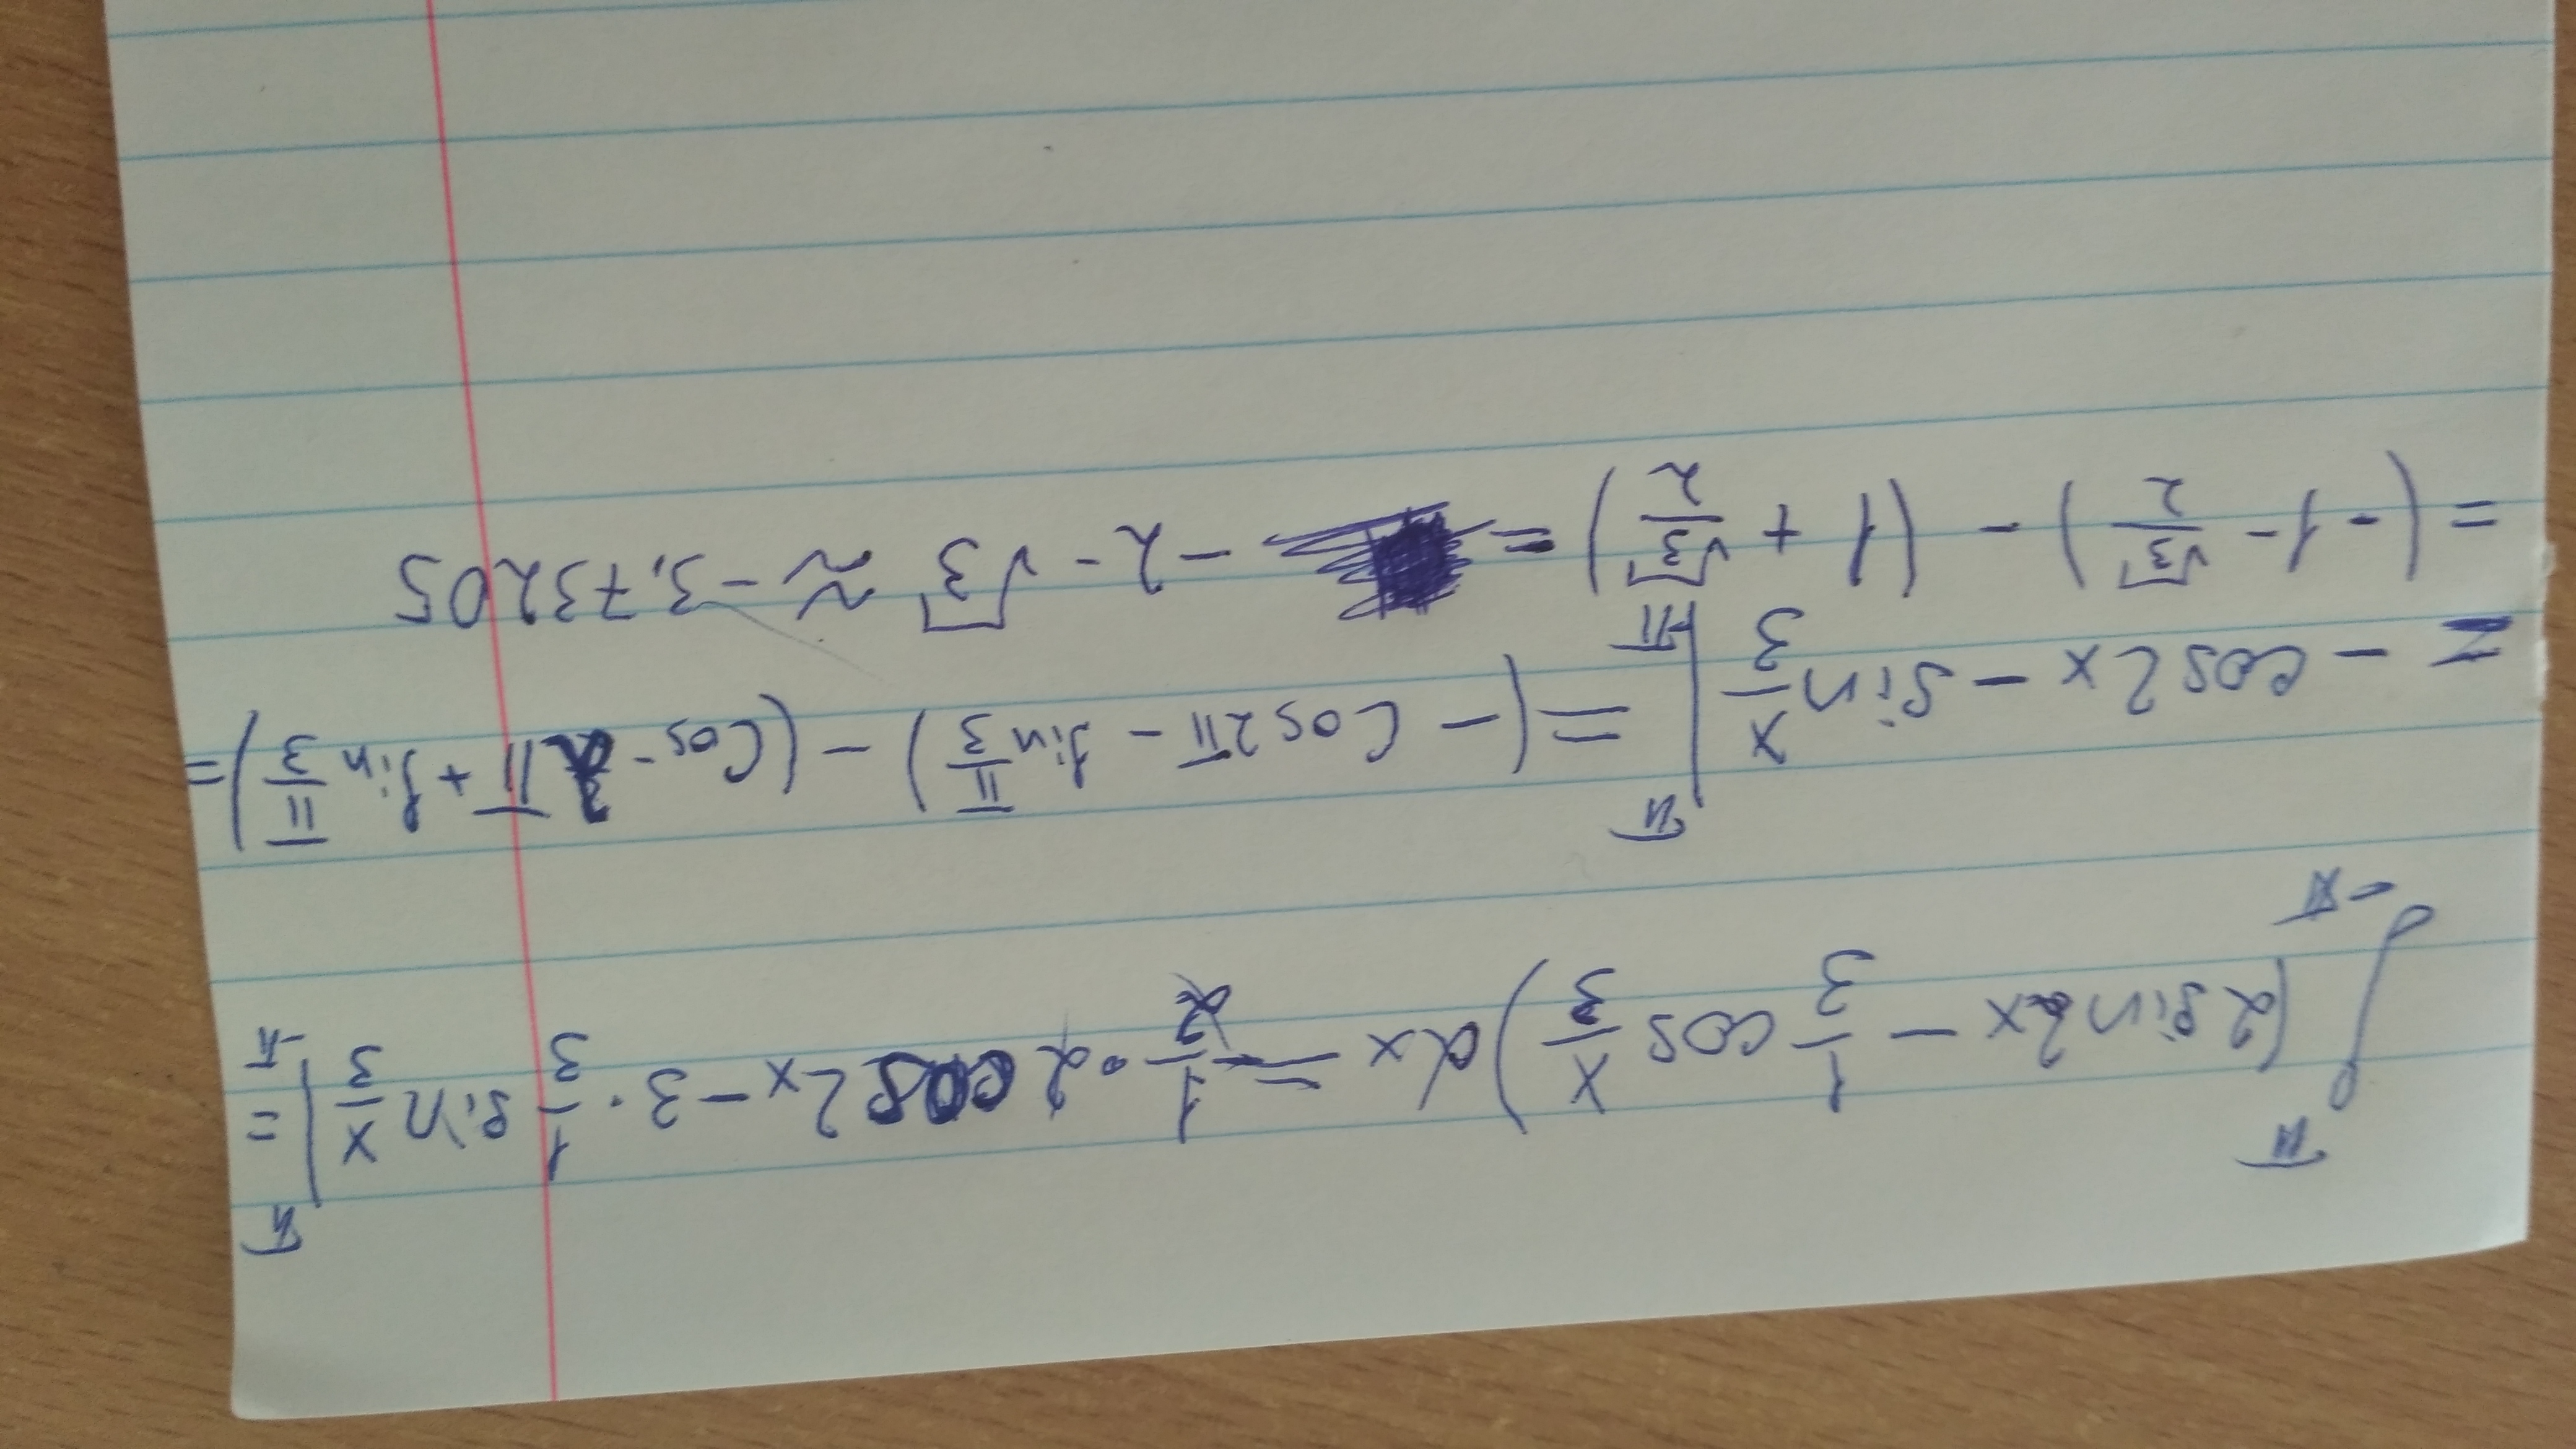 ∫_{-π}^{π} (2 sin2x - 1/3 cos x/3) dx = -1/2 · 2 cos2x - 3 · 1/3 sin x/3 |_{-π}^{π} =
= - cos2x - sin x/3 |_{-π}^{π} = (- cos2π - sin π/3) - (cos -2π + sin π/3) =
= (-1 - √3/2) - (1 + √3/2) = -2 - √3 ≈ -3,73205